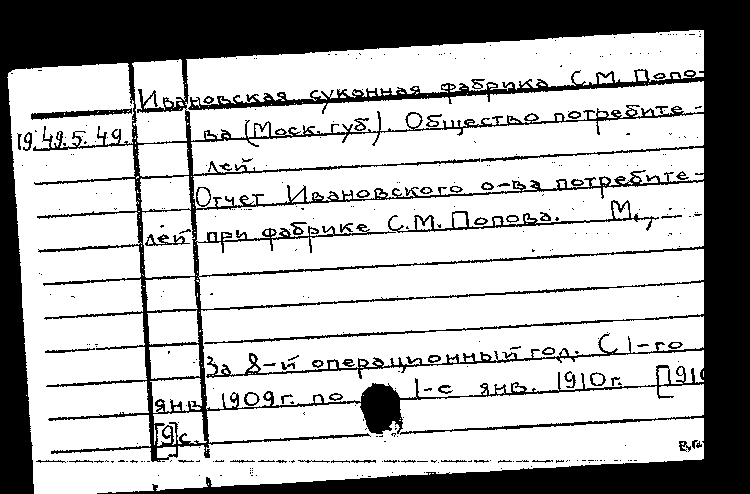 Ивановская суконная фабрика С.М. Попо-
19.49.5.49. ва (Моск. губ.). Общество потребите-
лей.
Отчет Ивановского о-ва потребите-
лей при фабрике С.М. Попова. М.,
За 8-й операционный год. С 1-го
янв. 1909г. по 1-е янв. 1910г. [1910
[9]с.